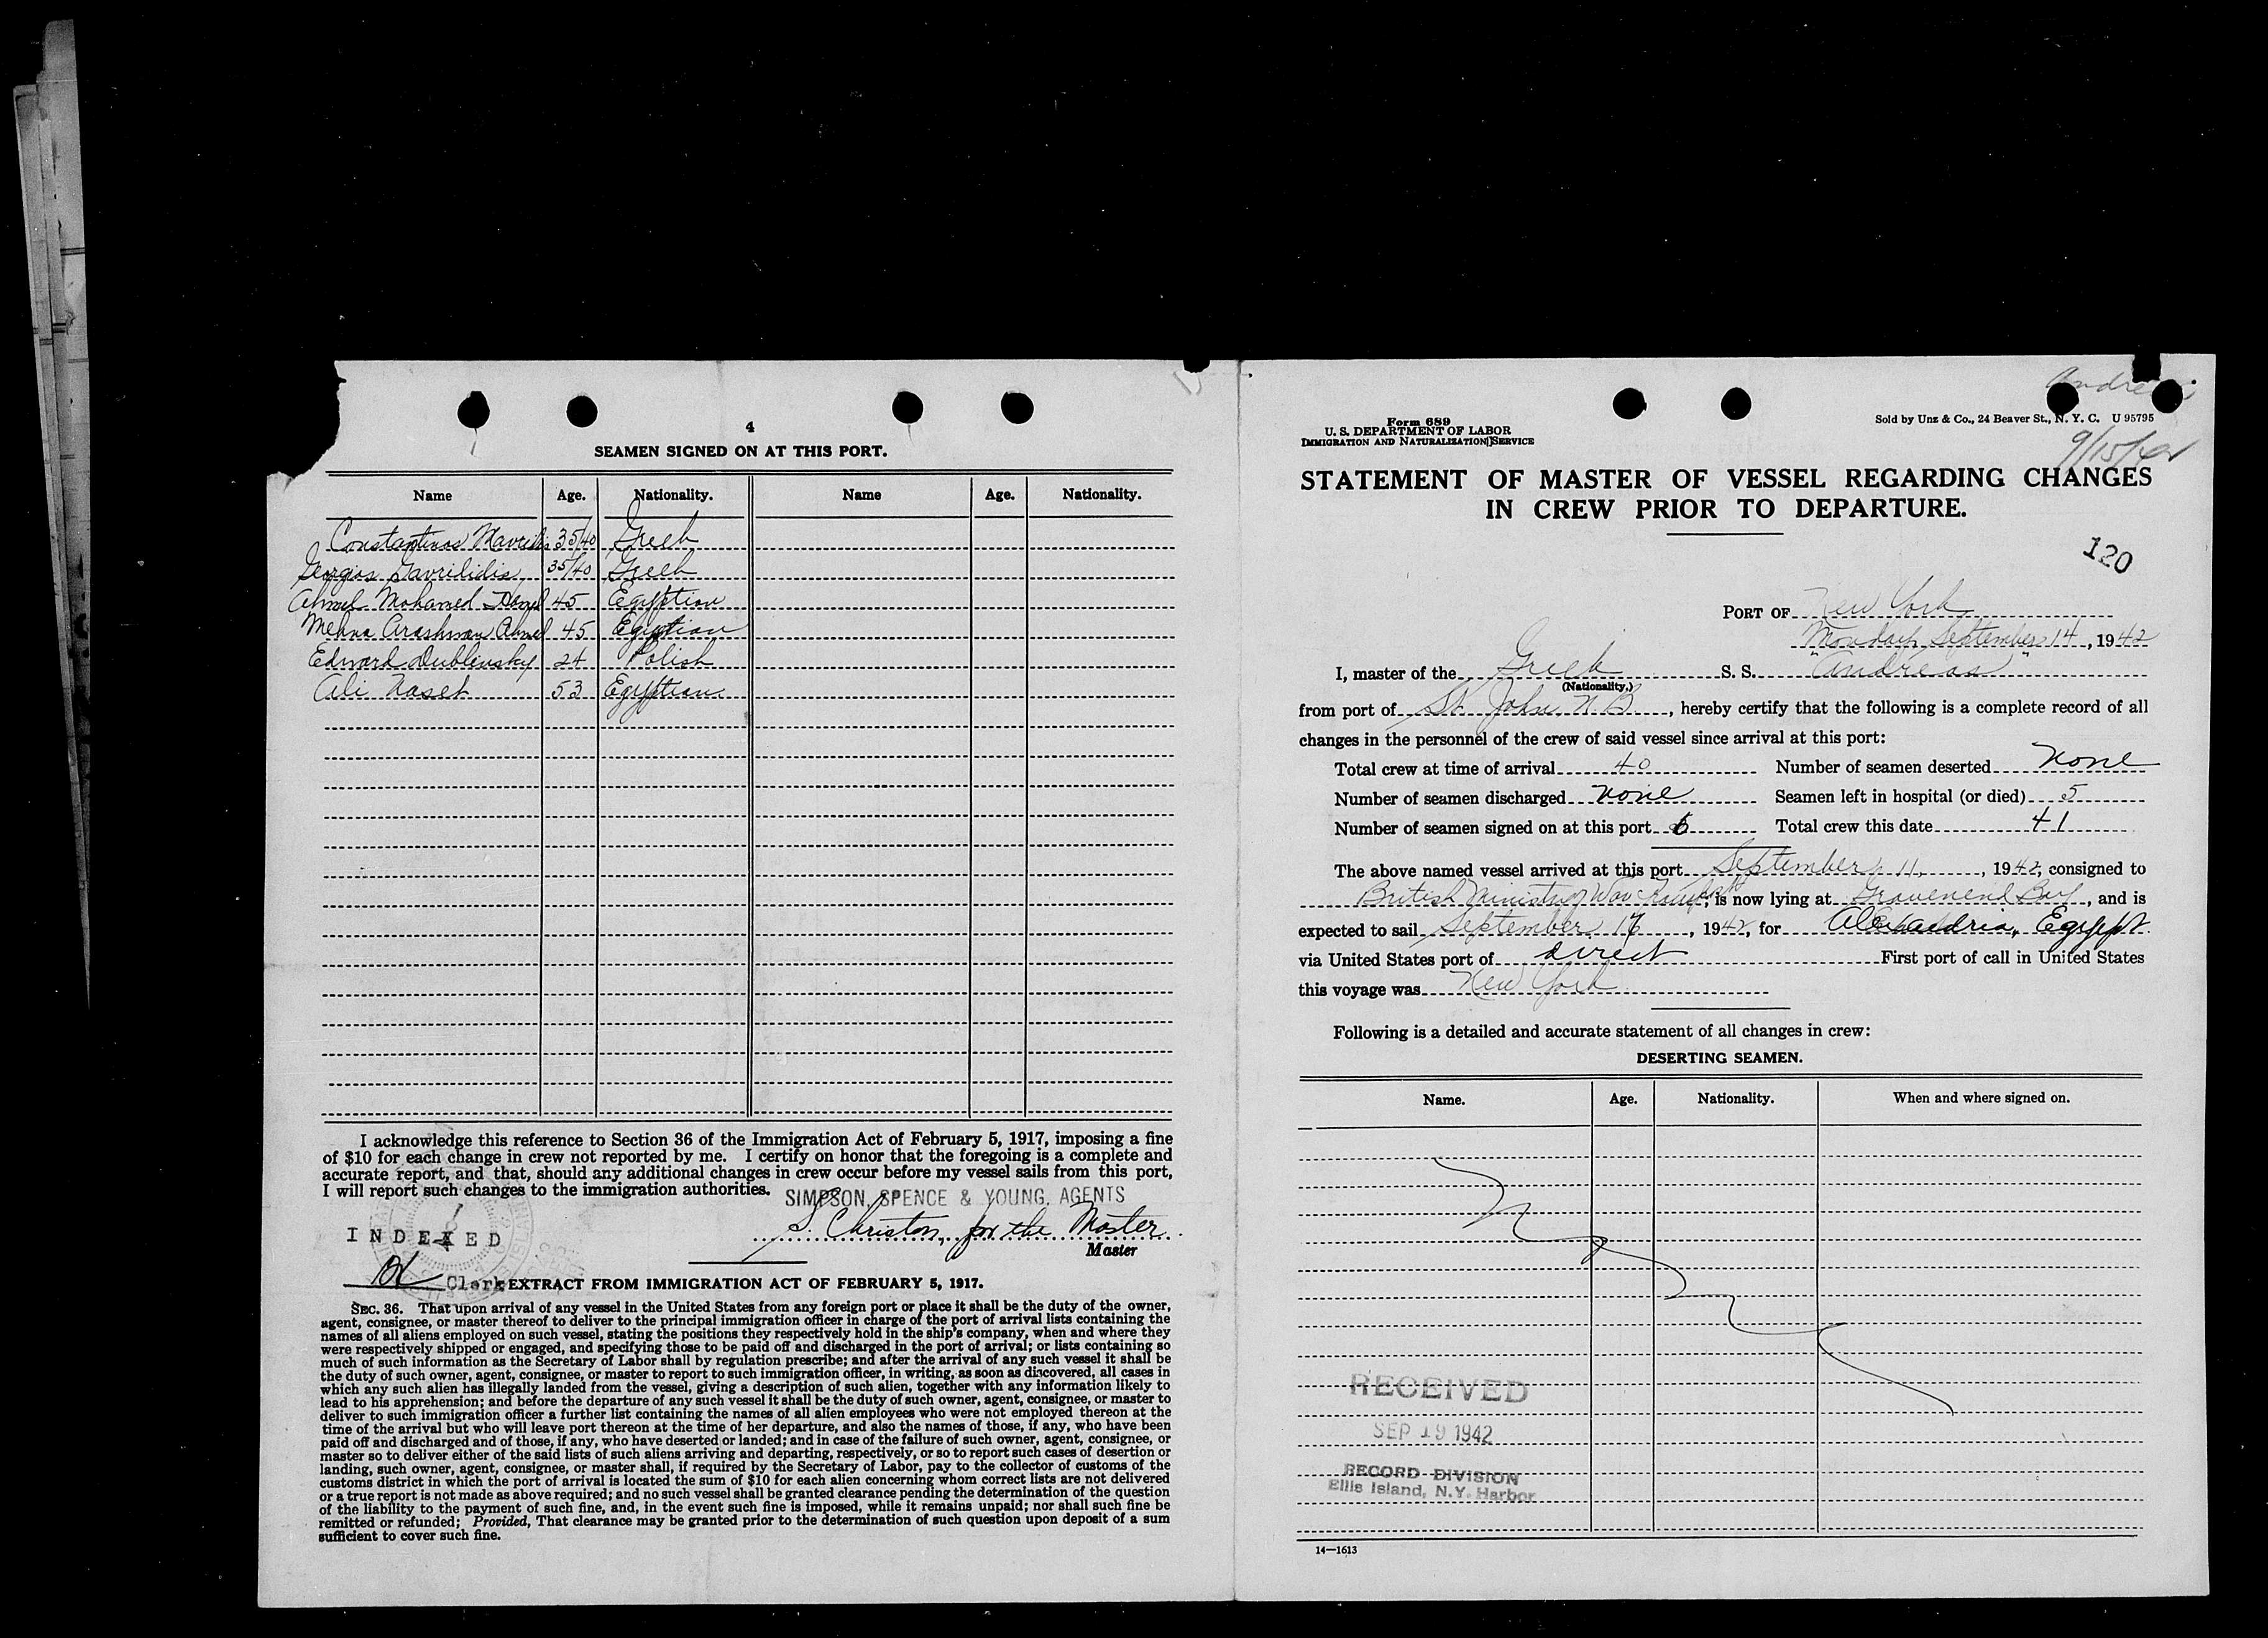 4
SEAMEN SIGNED ON AT THIS PORT.
Name Age. Nationality. Name Age. Nationality.
Constantinos Mavridis 35/40 Greek
Georgios Gavrilidis 35/40 Greek
Ahmed Mohamed 45 Egyptian
Mehna Arashman Ahmed 45 Egyptian
Edward Dublinsky 24 Polish
Ali Naset 53 Egyptian
I acknowledge this reference to Section 36 of the Immigration Act of February 5, 1917, imposing a fine
of $10 for each change in crew not reported by me. I certify on honor that the foregoing is a complete and
accurate report, and that, should any additional changes in crew occur before my vessel sails from this port,
I will report such changes to the immigration authorities.
SIMPSON, SPENCE & YOUNG, AGENTS
S. Christon, for the Master
Master
INDEXED
Clerk
EXTRACT FROM IMMIGRATION ACT OF FEBRUARY 5, 1917.
SEC. 36. That upon arrival of any vessel in the United States from any foreign port or place it shall be the duty of the owner,
agent, consignee, or master thereof to deliver to the principal immigration officer in charge of the port of arrival lists containing the
names of all aliens employed on such vessel, stating the positions they respectively hold in the ship's company, when and where they
were respectively shipped or engaged, and specifying those to be paid off and discharged in the port of arrival; or lists containing so
much of such information as the Secretary of Labor shall by regulation prescribe; and after the arrival of any such vessel it shall be
the duty of such owner, agent, consignee, or master to report to such immigration officer, in writing, as soon as discovered, all cases in
which any such alien has illegally landed from the vessel, giving a description of such alien, together with any information likely to
lead to his apprehension; and before the departure of any such vessel it shall be the duty of such owner, agent, consignee, or master to
deliver to such immigration officer a further list containing the names of all alien employees who were not employed thereon at the
time of the arrival but who will leave port thereon at the time of her departure, and also the names of those, if any, who have been
paid off and discharged and of those, if any, who have deserted or landed; and in case of the failure of such owner, agent, consignee, or
master so to deliver either of the said lists of such aliens arriving and departing, respectively, or so to report such cases of desertion or
landing, such owner, agent, consignee, or master shall, if required by the Secretary of Labor, pay to the collector of customs of the
customs district in which the port of arrival is located the sum of $10 for each alien concerning whom correct lists are not delivered
or a true report is not made as above required; and no such vessel shall be granted clearance pending the determination of the question
of the liability to the payment of such fine, and, in the event such fine is imposed, while it remains unpaid; nor shall such fine be
remitted or refunded; Provided, That clearance may be granted prior to the determination of such question upon deposit of a sum
sufficient to cover such fine.
Form 689
U. S. DEPARTMENT OF LABOR
IMMIGRATION AND NATURALIZATION SERVICE
Sold by Unz & Co., 24 Beaver St., N. Y. C. U 95795
9/15/42
STATEMENT OF MASTER OF VESSEL REGARDING CHANGES
IN CREW PRIOR TO DEPARTURE.
120
PORT OF New York
Monday September 14, 1942
I, master of the Greek S. S. "Andreas"
(Nationality.)
from port of St. John N.B., hereby certify that the following is a complete record of all
changes in the personnel of the crew of said vessel since arrival at this port:
Total crew at time of arrival 40 Number of seamen deserted None
Number of seamen discharged None Seamen left in hospital (or died) 5
Number of seamen signed on at this port 6 Total crew this date 41
The above named vessel arrived at this port September 11, 1942, consigned to
British Ministry War Transpt, is now lying at Gravenend Bay, and is
expected to sail September 17, 1942, for Alexandria, Egypt
via United States port of direct First port of call in United States
this voyage was New York
Following is a detailed and accurate statement of all changes in crew:
DESERTING SEAMEN.
Name. Age. Nationality. When and where signed on.
RECEIVED
SEP 19 1942
RECORD DIVISION
Ellis Island, N.Y. Harbor
14—1613